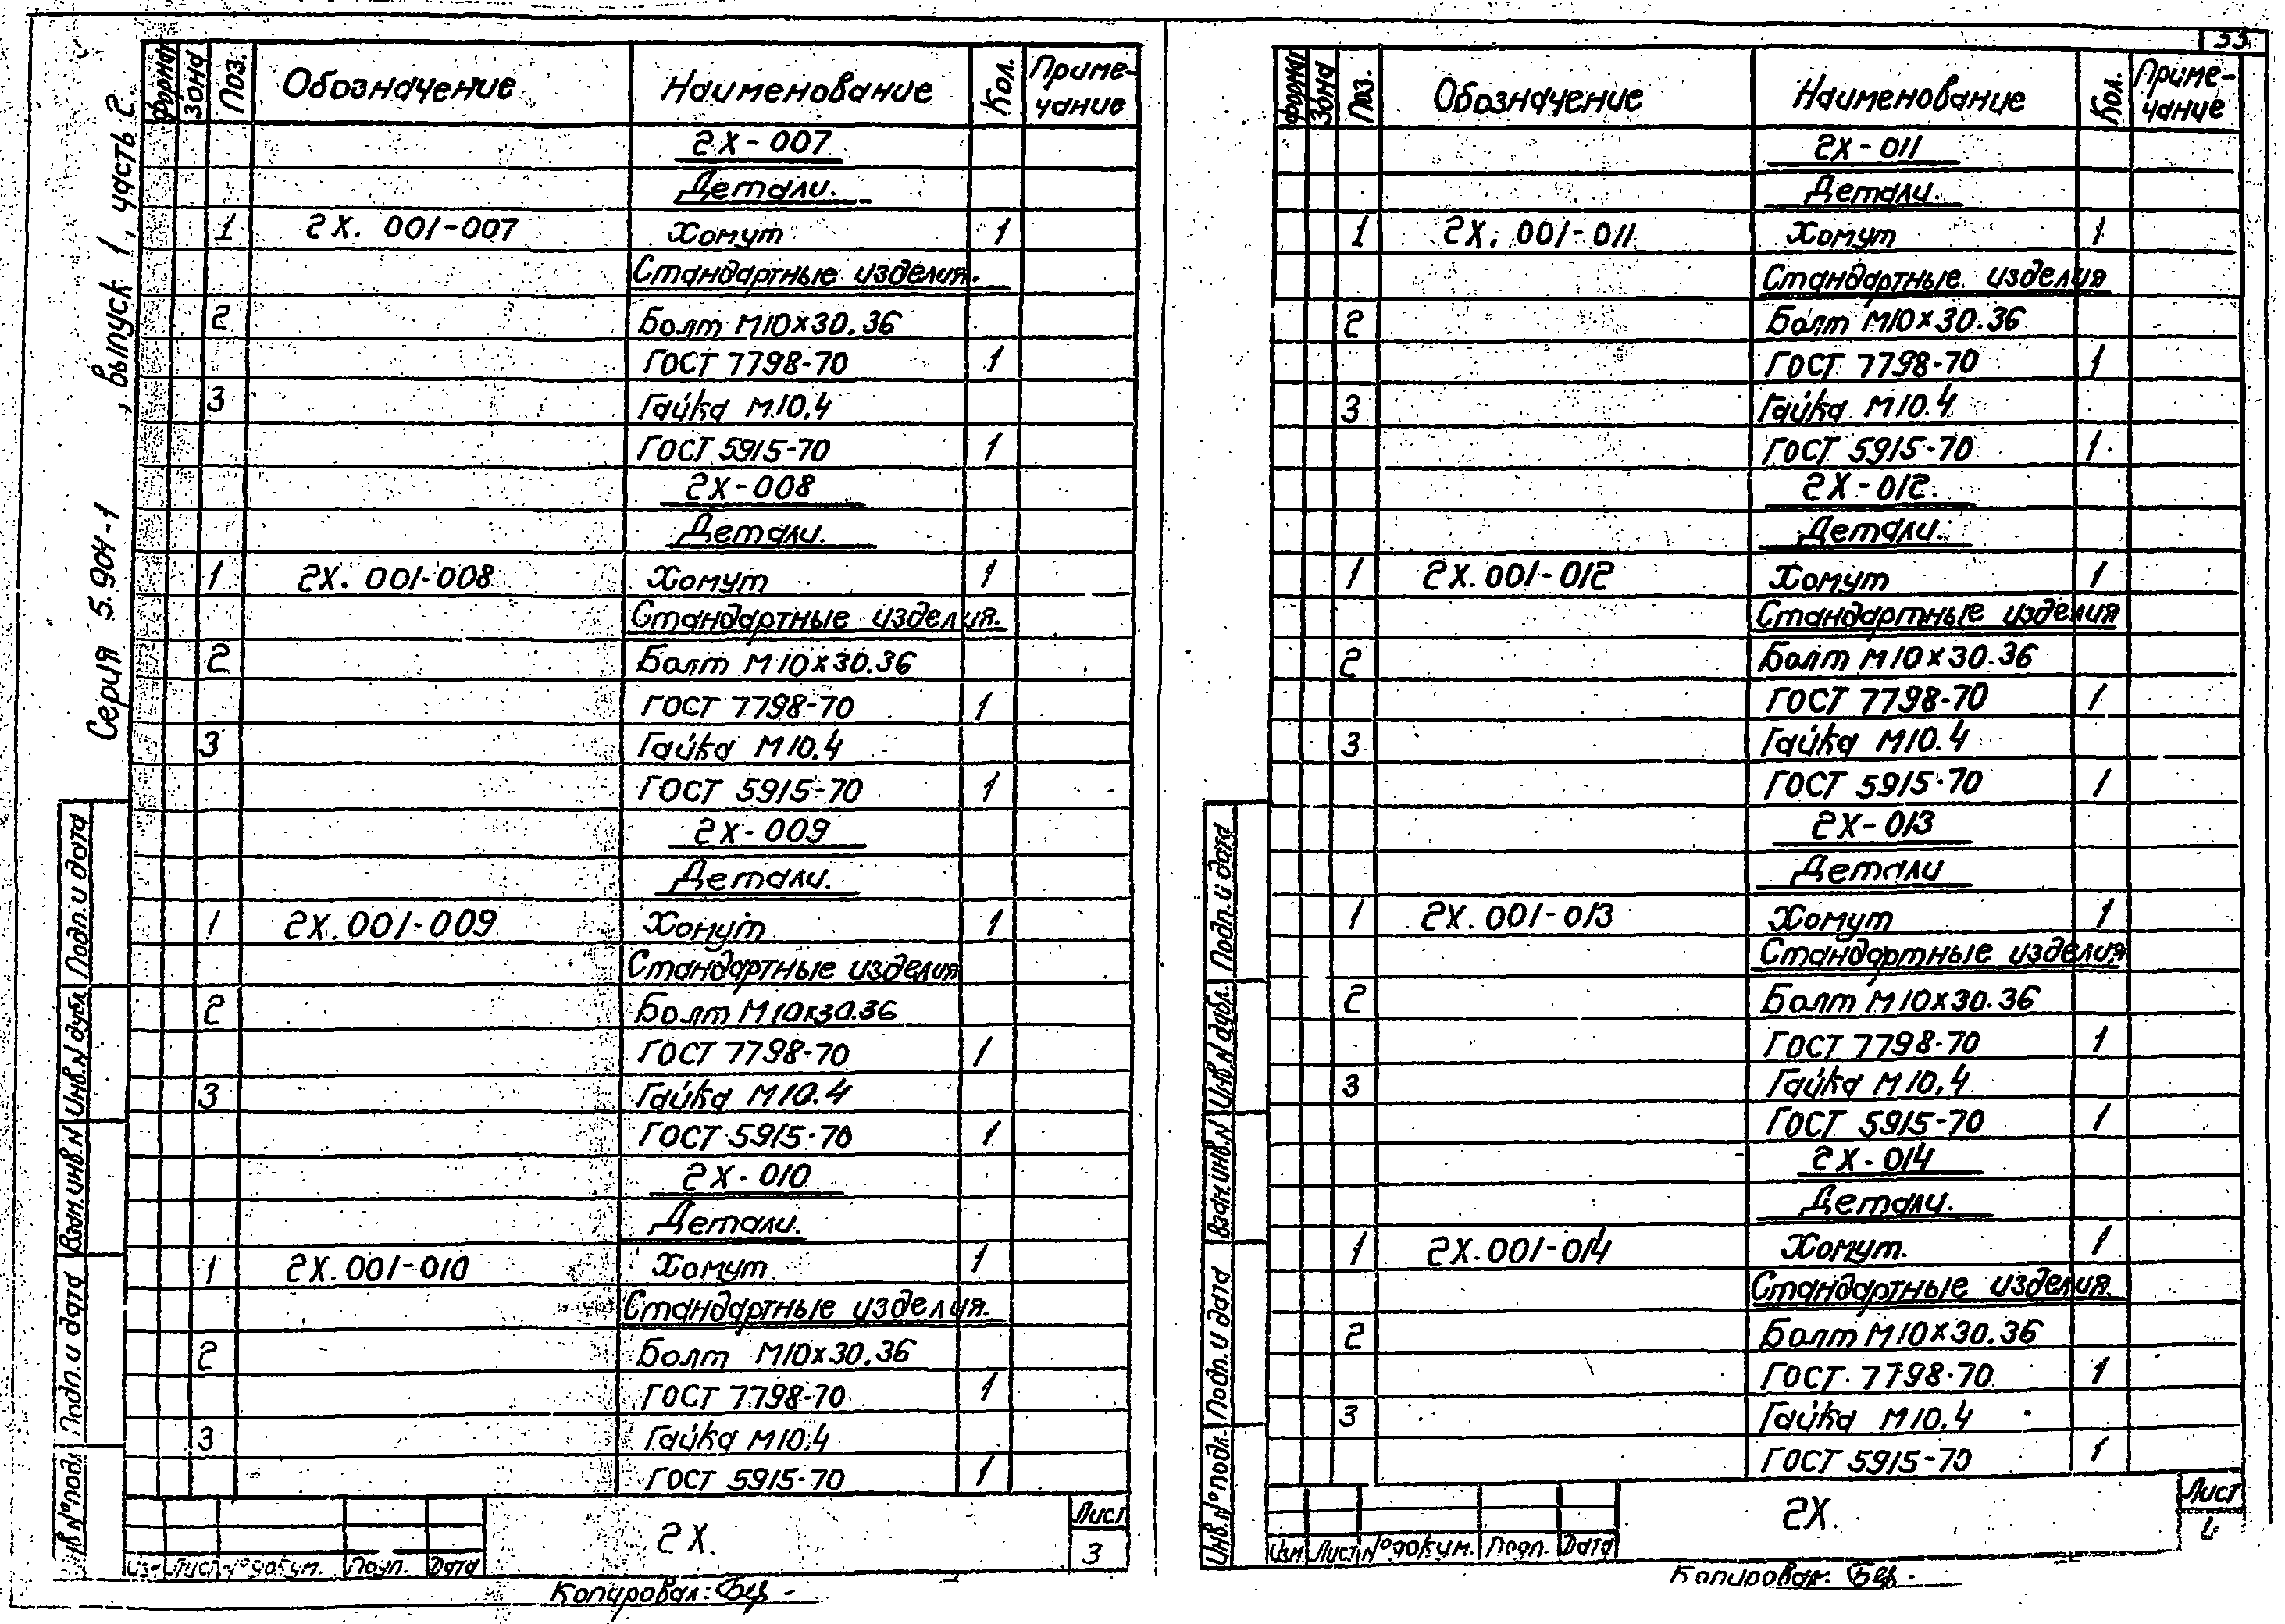 53
Серия 5.904-1 , выпуск 1, часть 2
Формат Зона Поз. Обозначение Наименование Кол. Приме-
чание
2Х-007
Детали.
1 2Х. 001-007 Хомут 1
Стандартные изделия.
2 Болт М10х30.36
ГОСТ 7798-70 1
3 Гайка М10.4
ГОСТ 5915-70 1
2Х-008
Детали.
1 2Х. 001-008 Хомут 1
Стандартные изделия.
2 Болт М10х30.36
ГОСТ 7798-70 1
3 Гайка М10.4
ГОСТ 5915-70 1
2Х-009
Детали.
1 2Х.001-009 Хомут 1
Стандартные изделия
2 Болт М10х30.36
ГОСТ 7798-70 1
3 Гайка М10.4
ГОСТ 5915-70 1
2Х-010
Детали.
1 2Х.001-010 Хомут 1
Стандартные изделия.
2 Болт М10х30.36
ГОСТ 7798-70 1
3 Гайка М10.4
ГОСТ 5915-70 1
Подп. и дата
Инв.N дубл.
Взам.инв.N
Подп. и дата
Инв.N°подл.
Изм Лист N°докум. Подп. Дата
2Х.
Лист
3
Копировал:
Формат Зона Поз. Обозначение Наименование Кол. Приме-
чание
2Х-011
Детали.
1 2Х. 001-011 Хомут 1
Стандартные изделия
2 Болт М10х30.36
ГОСТ 7798-70 1
3 Гайка М10.4
ГОСТ 5915-70 1
2Х-012.
Детали.
1 2Х.001-012 Хомут 1
Стандартные изделия
2 Болт М10х30.36
ГОСТ 7798-70 1
3 Гайка М10.4
ГОСТ 5915-70 1
2Х-013
Детали
1 2Х.001-013 Хомут 1
Стандартные изделия
2 Болт М10х30.36
ГОСТ 7798-70 1
3 Гайка М10.4
ГОСТ 5915-70 1
2Х-014
Детали.
1 2Х.001-014 Хомут. 1
Стандартные изделия.
2 Болт М10х30.36
ГОСТ 7798-70 1
3 Гайка М10.4
ГОСТ 5915-70 1
Подп. и дата
Инв.N дубл.
Взам.инв.N
Подп. и дата
Инв.N°подл.
Изм Лист N°докум. Подп. Дата
2Х.
Лист
Копировал: